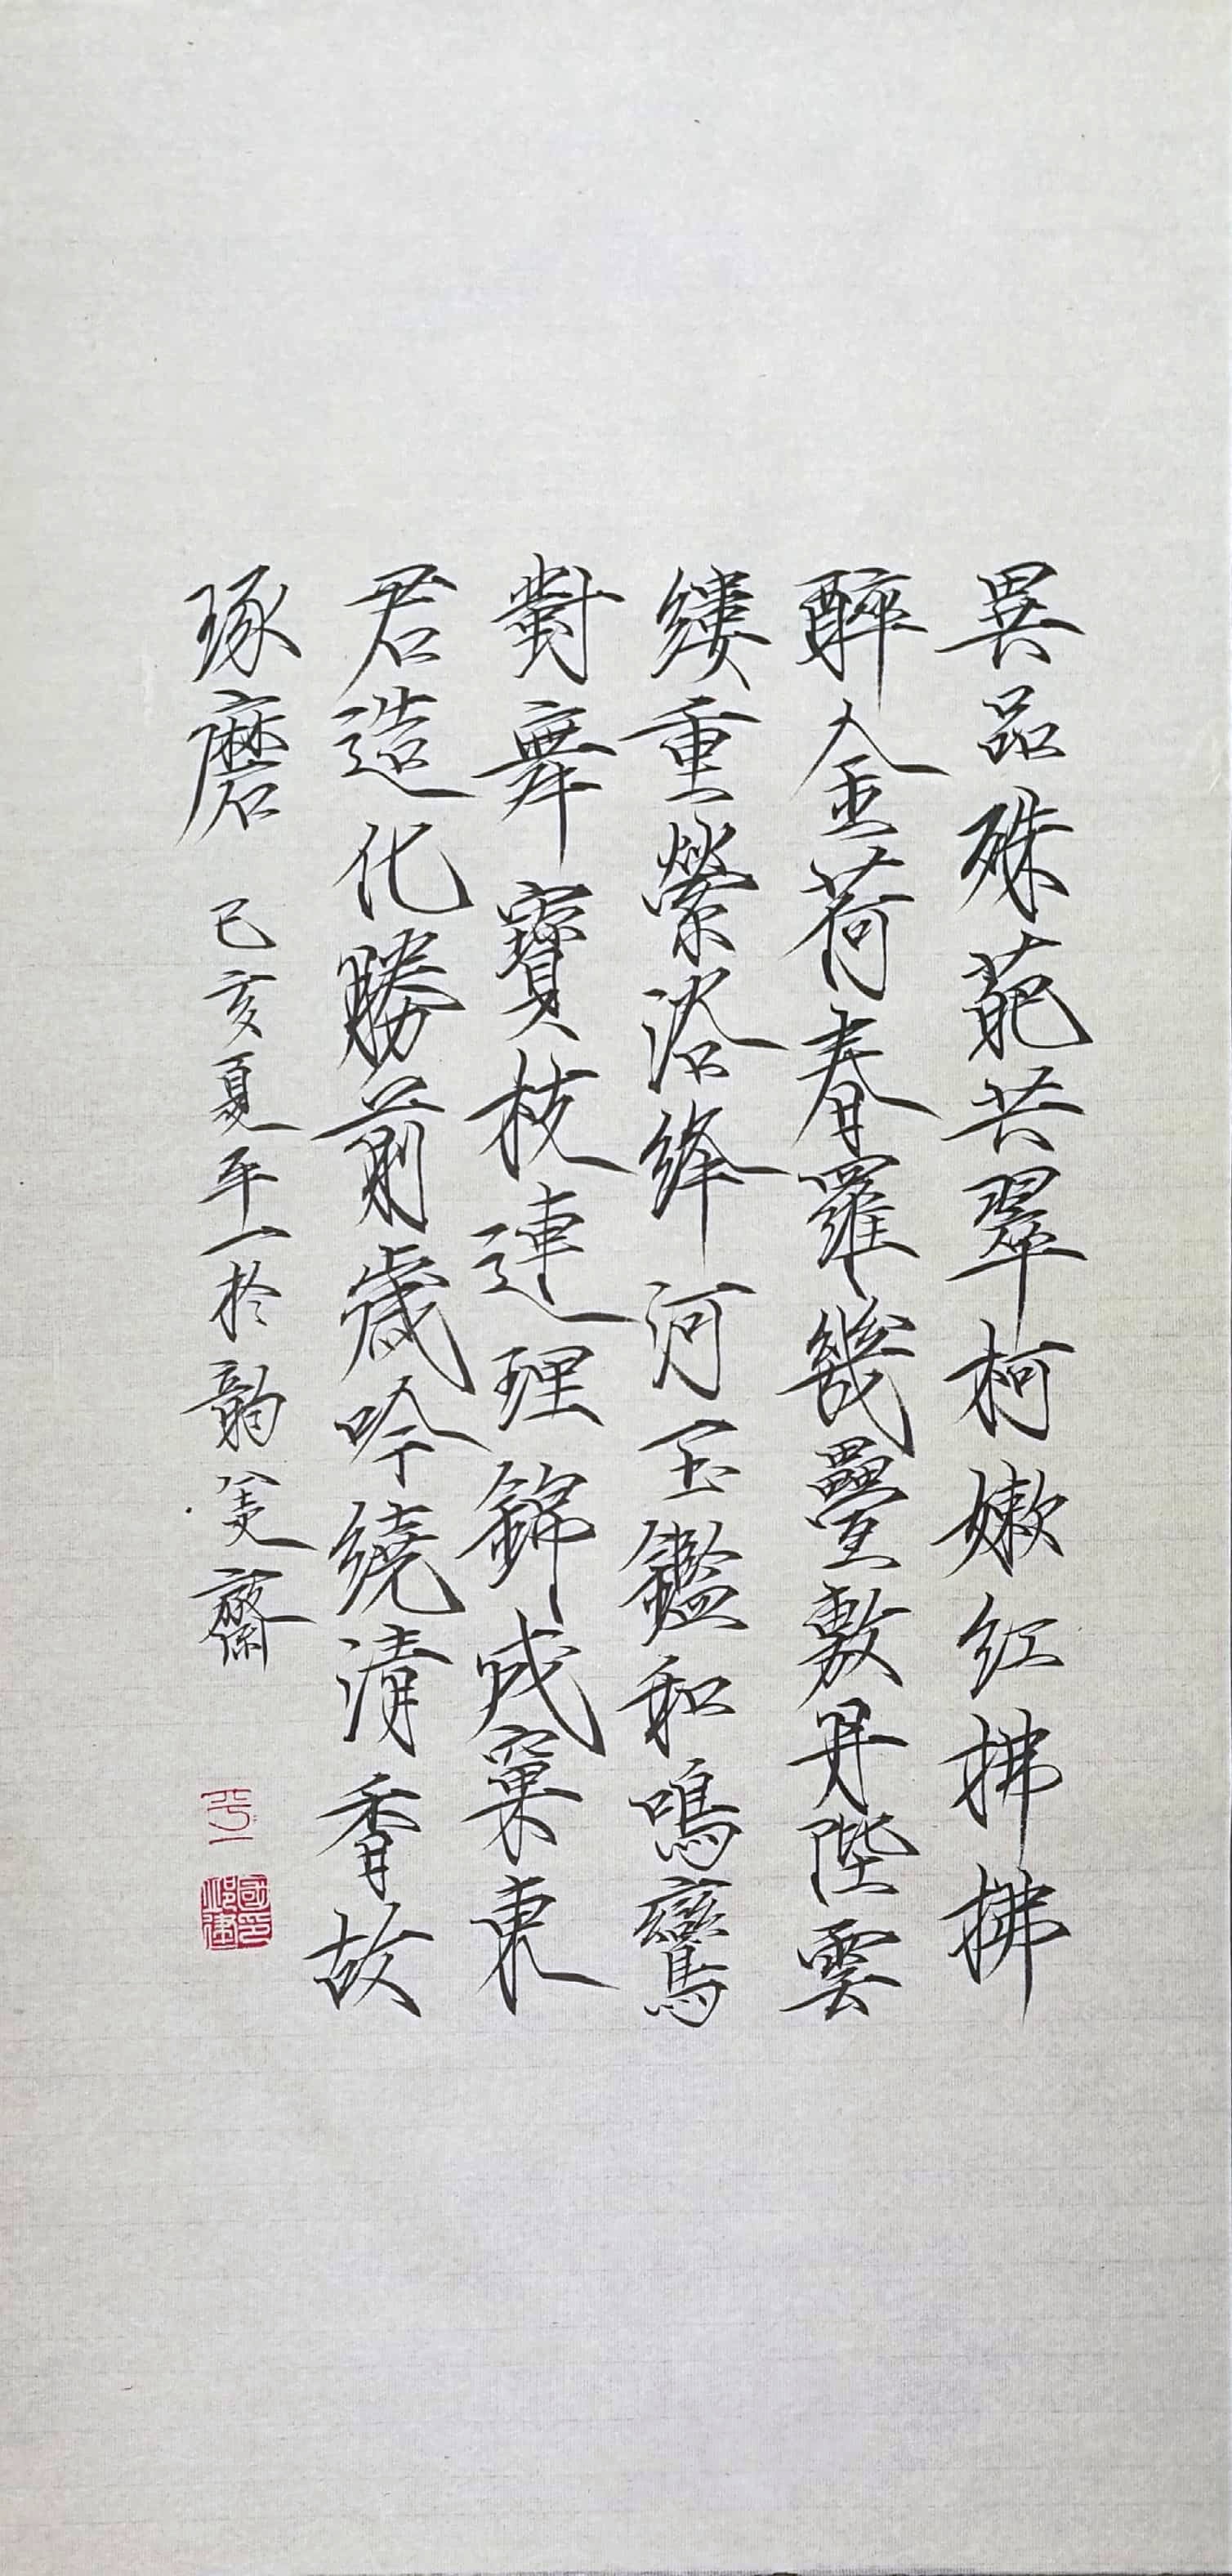 異品殊葩共翠柯嫩紅拂拂
醉金荷春羅幾疊敷丹陛雲
縷重縈浴絳河玉鑑和鳴鸞
對舞寶枝連理錦成窠東
君造化勝前歲吟繞清香故
琢磨 己亥夏平一於韵齋
平一